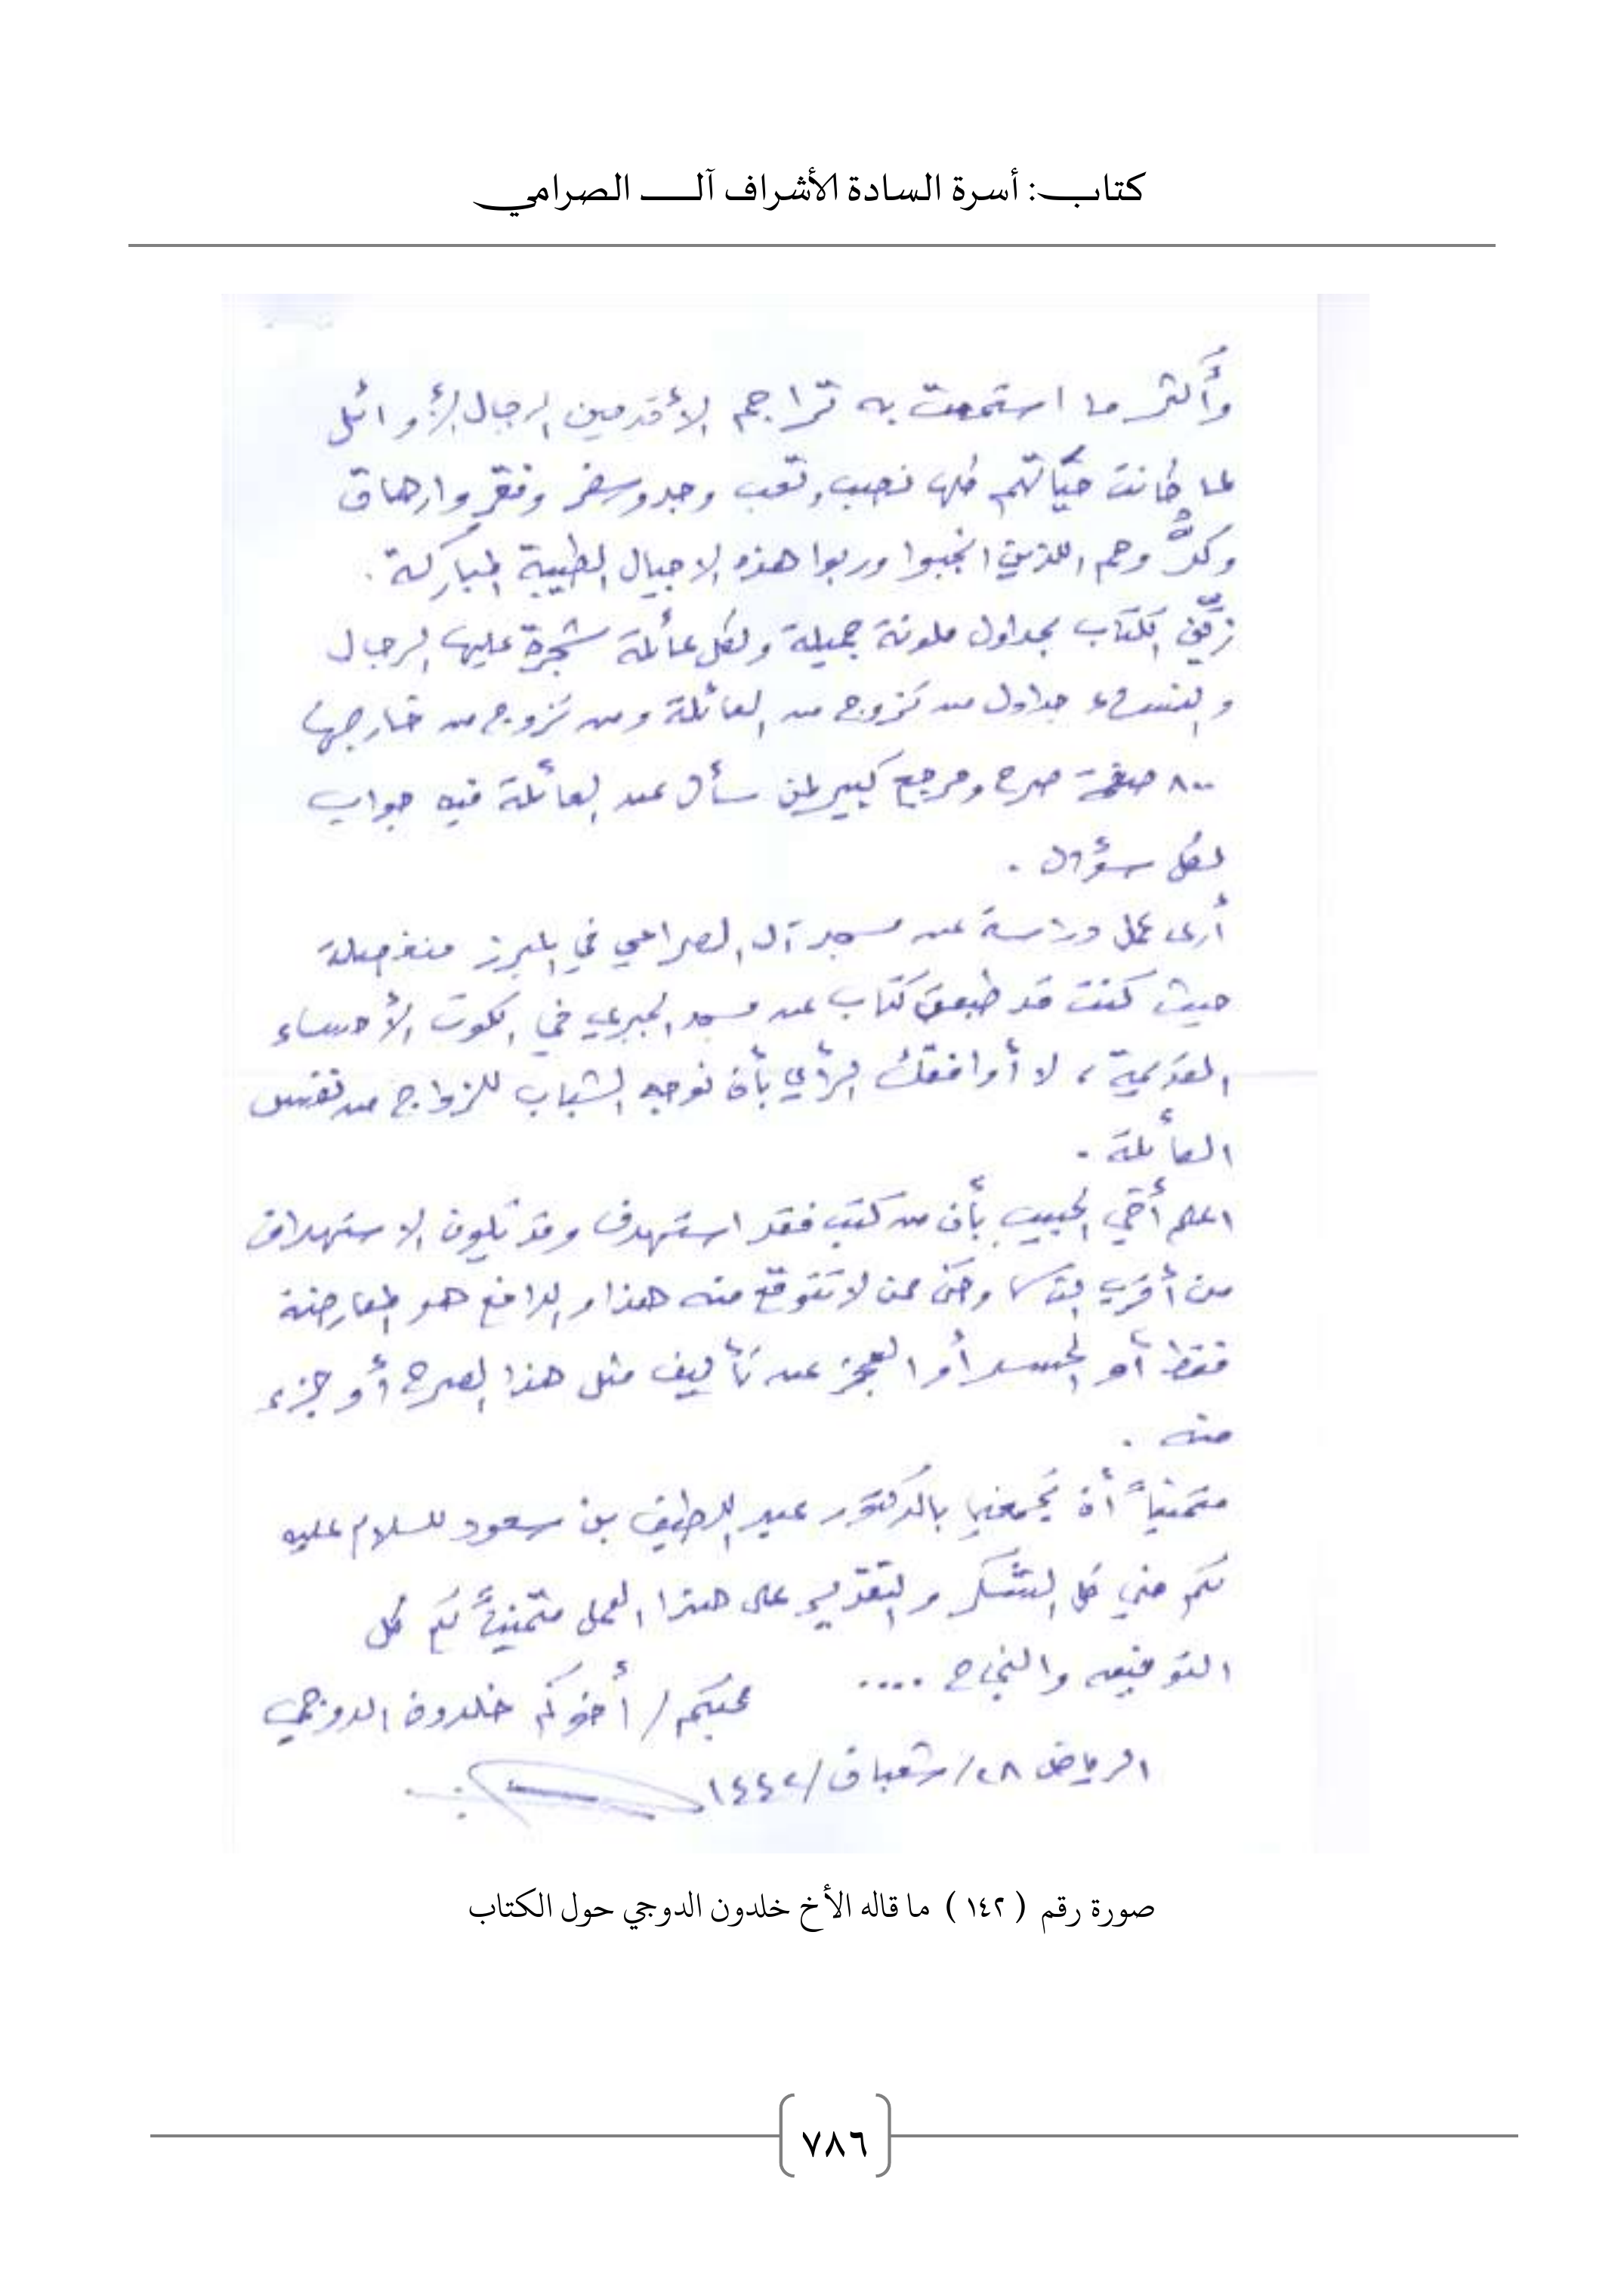 كتاب: أسرة السادة الأشراف آل الصرامي
وأكثر ما استمتعت به تراجم الأقدمين الرجال الأوائل
لما كانت حياتهم كلها نصب وتعب وجد وسفر وفقر وارهاق
وكدٌّ وهم اللذين انجبوا وربوا هذه الاجيال الطيبة المباركة .
زيّن الكتاب بجداول ملونة جميلة ولكل عائلة شجرة عليها الرجال
والنساء جداول من تزوج من العائلة ومن تزوج من خارجها
٨٠٠ صفحة صرح ومرجع كبير لمن سأل عن العائلة فيه جواب
لكل سؤال .
أرى عمل دراسة عن مسجد آل الصرامي في المبرز منفصلة
حيث كنت قد طبعت كتاب عن مسجد الجبري في الكوت الأحساء
القديمة ، لا أوافقك الرأي بأن نوجه الشباب للزواج من نفس
العائلة .
اعلم أخي الحبيب بأن من كتب فقد استهدف وقد تكون الاستهداف
من أقرب الناس وحتى ممن لا تتوقع منه هذا والدافع هو المعارضة
فقط أو الحسد أو العجز عن تأليف مثل هذا الصرح أو جزء
منه .
متمنياً أن يجمعنا بالدكتور عبد اللطيف بن سعود للسلام عليه
لكم مني كل الشكر والتقدير على هذا العمل متمنياً لكم كل
التوفيق والنجاح ....
محبكم / أخوكم خلدون الدوجي
الرياض ٢٨/شعبان/١٤٤٢
صورة رقم ( ١٤٢ ) ما قاله الأخ خلدون الدوجي حول الكتاب
٧٨٦